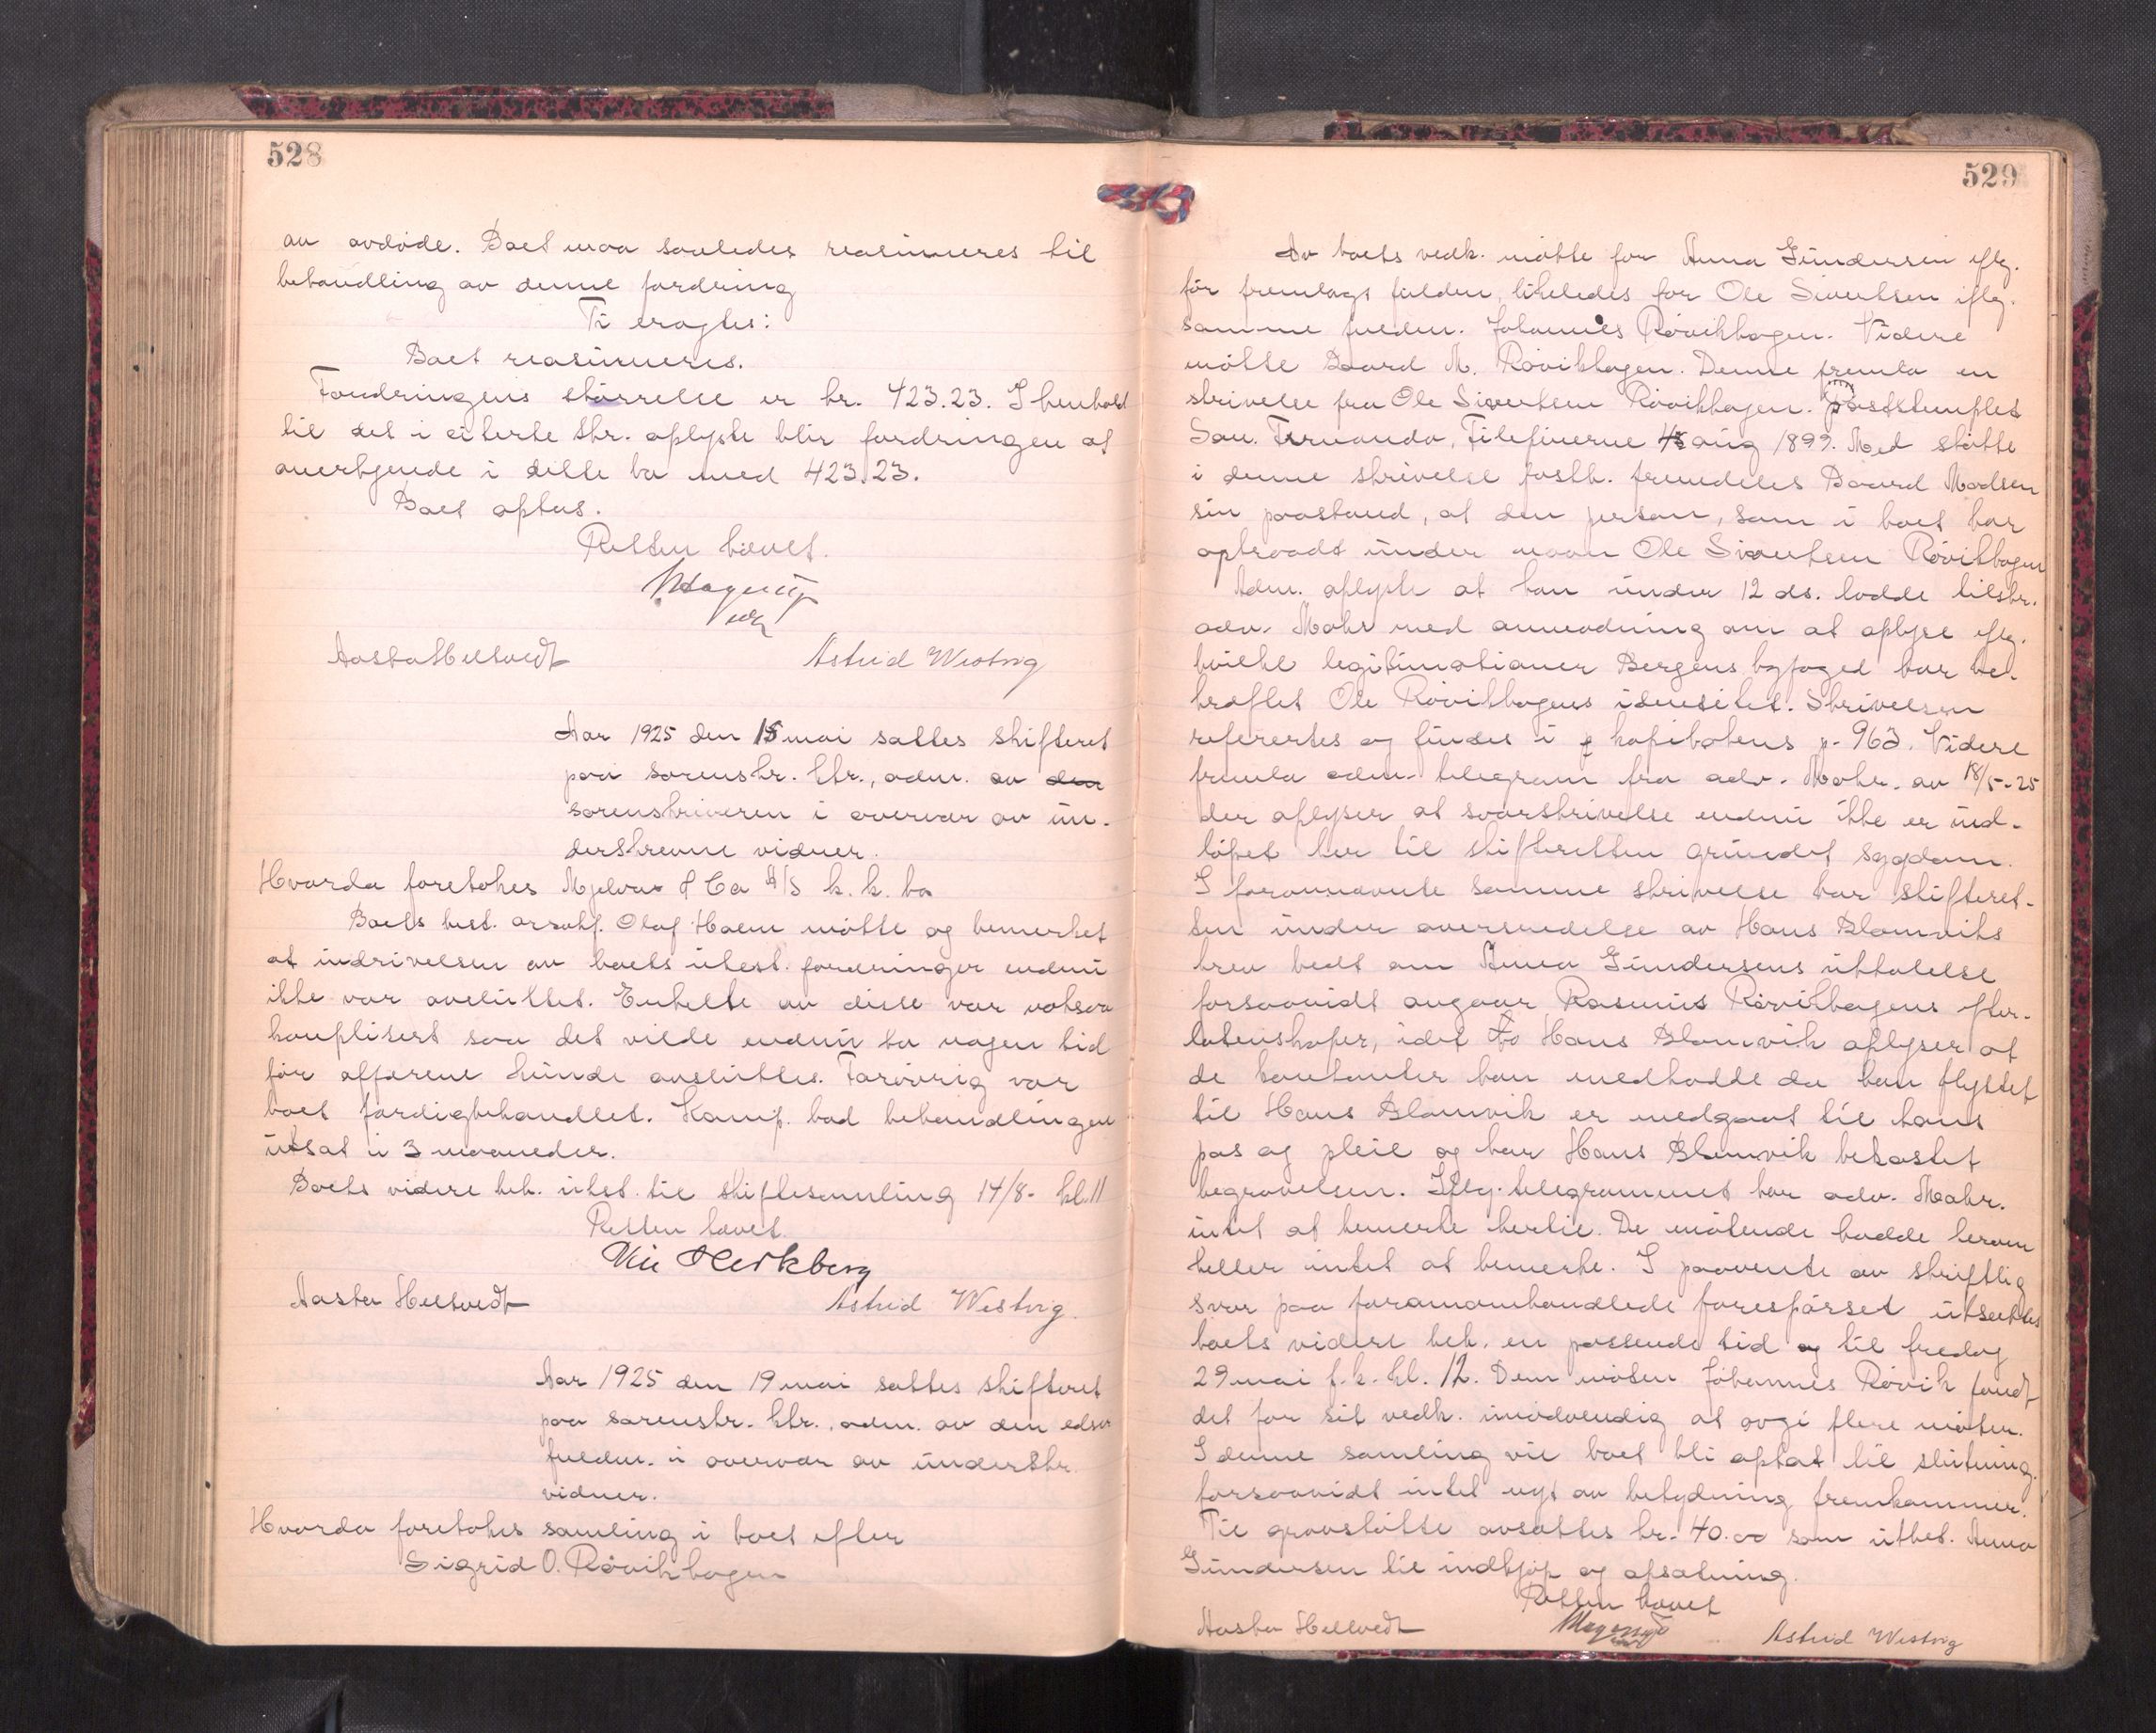 528
av avdøde. Boet maa saaledes reasumeres til
behandling av denne fordring
Ti eragtes:
Boet reasumeres.
Fordringens størrelse er kr. 423.23. I henhold
til det i citerte skr. oplyste blir fordringen at
anerkjende i dette bo med 423.23.
Boet optas.
Retten hævet.
Aasta Helsvedt Astrid Westvig
Aar 1925 den 15 mai sattes skifteret
paa sorenskr. ktr., adm. av den
sorenskriveren i overvær av un-
derskrevne vidner.
Hvorda foretokes Mjelva & Co A/S k. k. bo
Boets best. orsakf. Olaf Holm møtte og bemerket
at indrivelsen av boets utest. fordringer endnu
ikke var avsluttet. Enkelte av disse var noksaa
komplisert saa det vilde endnu ta nogen tid
før affærene kunde avsluttes. Forøvrig var
boet færdigbehandlet. Komp. bad behandlingen
utsat i 3 maaneder.
Boets videre beh. utst. til skiftesamling 14/8- kl. 11
Retten hævet.
Aasta Helsvedt Astrid Westvig.
Aar 1925 den 19 mai sattes skifteret
paa sorenskr. ktr., adm. av den edsv
fuldm. i overvær av underskr.
vidner.
Hvorda foretokes samling i boet efter
Sigrid O. Røvikhagen
529
Av boets vedk. møtte for Anna Gundersen iflg.
før fremlagt fuldm., likeledes for Ole Sivertsen iflg.
samme fuldm. Johannes Røvikhagen. Videre
møtte Baard M. Røvikhagen. Denne fremla en
skrivelse fra Ole Sivertsen Røvikhagen. poststemplet
San. Fernando, Filefinerne 15 aug 1899. Med støtte
i denne skrivelse fasth. fremdeles Baard Madsen
sin paastand, at den person, som i boet har
optraadt under navn Ole Sivertsen Røvikhagen
Adm. oplyste at han under 12 ds. hadde tilskr.
adv. Mohr med anmodning om at oplyse iflg.
hvilke legitimationer Bergens byfoged har be-
kræftet Ole Røvikhagens identitet. Skrivelsen
refereres og findes i kopibokens p. 963. Videre
fremla adm. telegram fra adv. Mohr. av 18/5-25
der oplyser at svarskrivelse endnu ikke er ind-
løpet her til skifteretten grundet sygdom.
I forannævnte samme skrivelse har skifteret-
ten under oversendelse av Hans Blomviks
brev bedt om Anna Gundersens uttalelse
forsaavidt angaar Rasmus Røvikhagens efter-
latenskaper, idet Hans Blomvik oplyser at
de kontanter han medhadde da han flyttet
til Hans Blomvik er medgaat til hans
pas og pleie og har Hans Blomvik bekostet
begravelsen. Iflg. telegrammet har adv. Mohr.
intet at bemerke hertil. De møtende hadde herom
heller intet at bemerke. I paavente av skriftlig
svar paa foranomhandlede forespørsel utsættes
boets videre beh. en passende tid og til fredag
29 mai f. k. kl. 12. Den møtende Johannes Røvik fandt
det for sit vedk. unødvendig at avgi flere møter.
I denne samling vil boet bli optat til slutning
forsaavidt intet nyt av betydning fremkommer.
Til gravstøtte avsattes kr. 40.00 som utbet. Anna
Gundersen til indkjøp og opsætning.
Retten hævet
Aasta Helsvedt Astrid Westvig